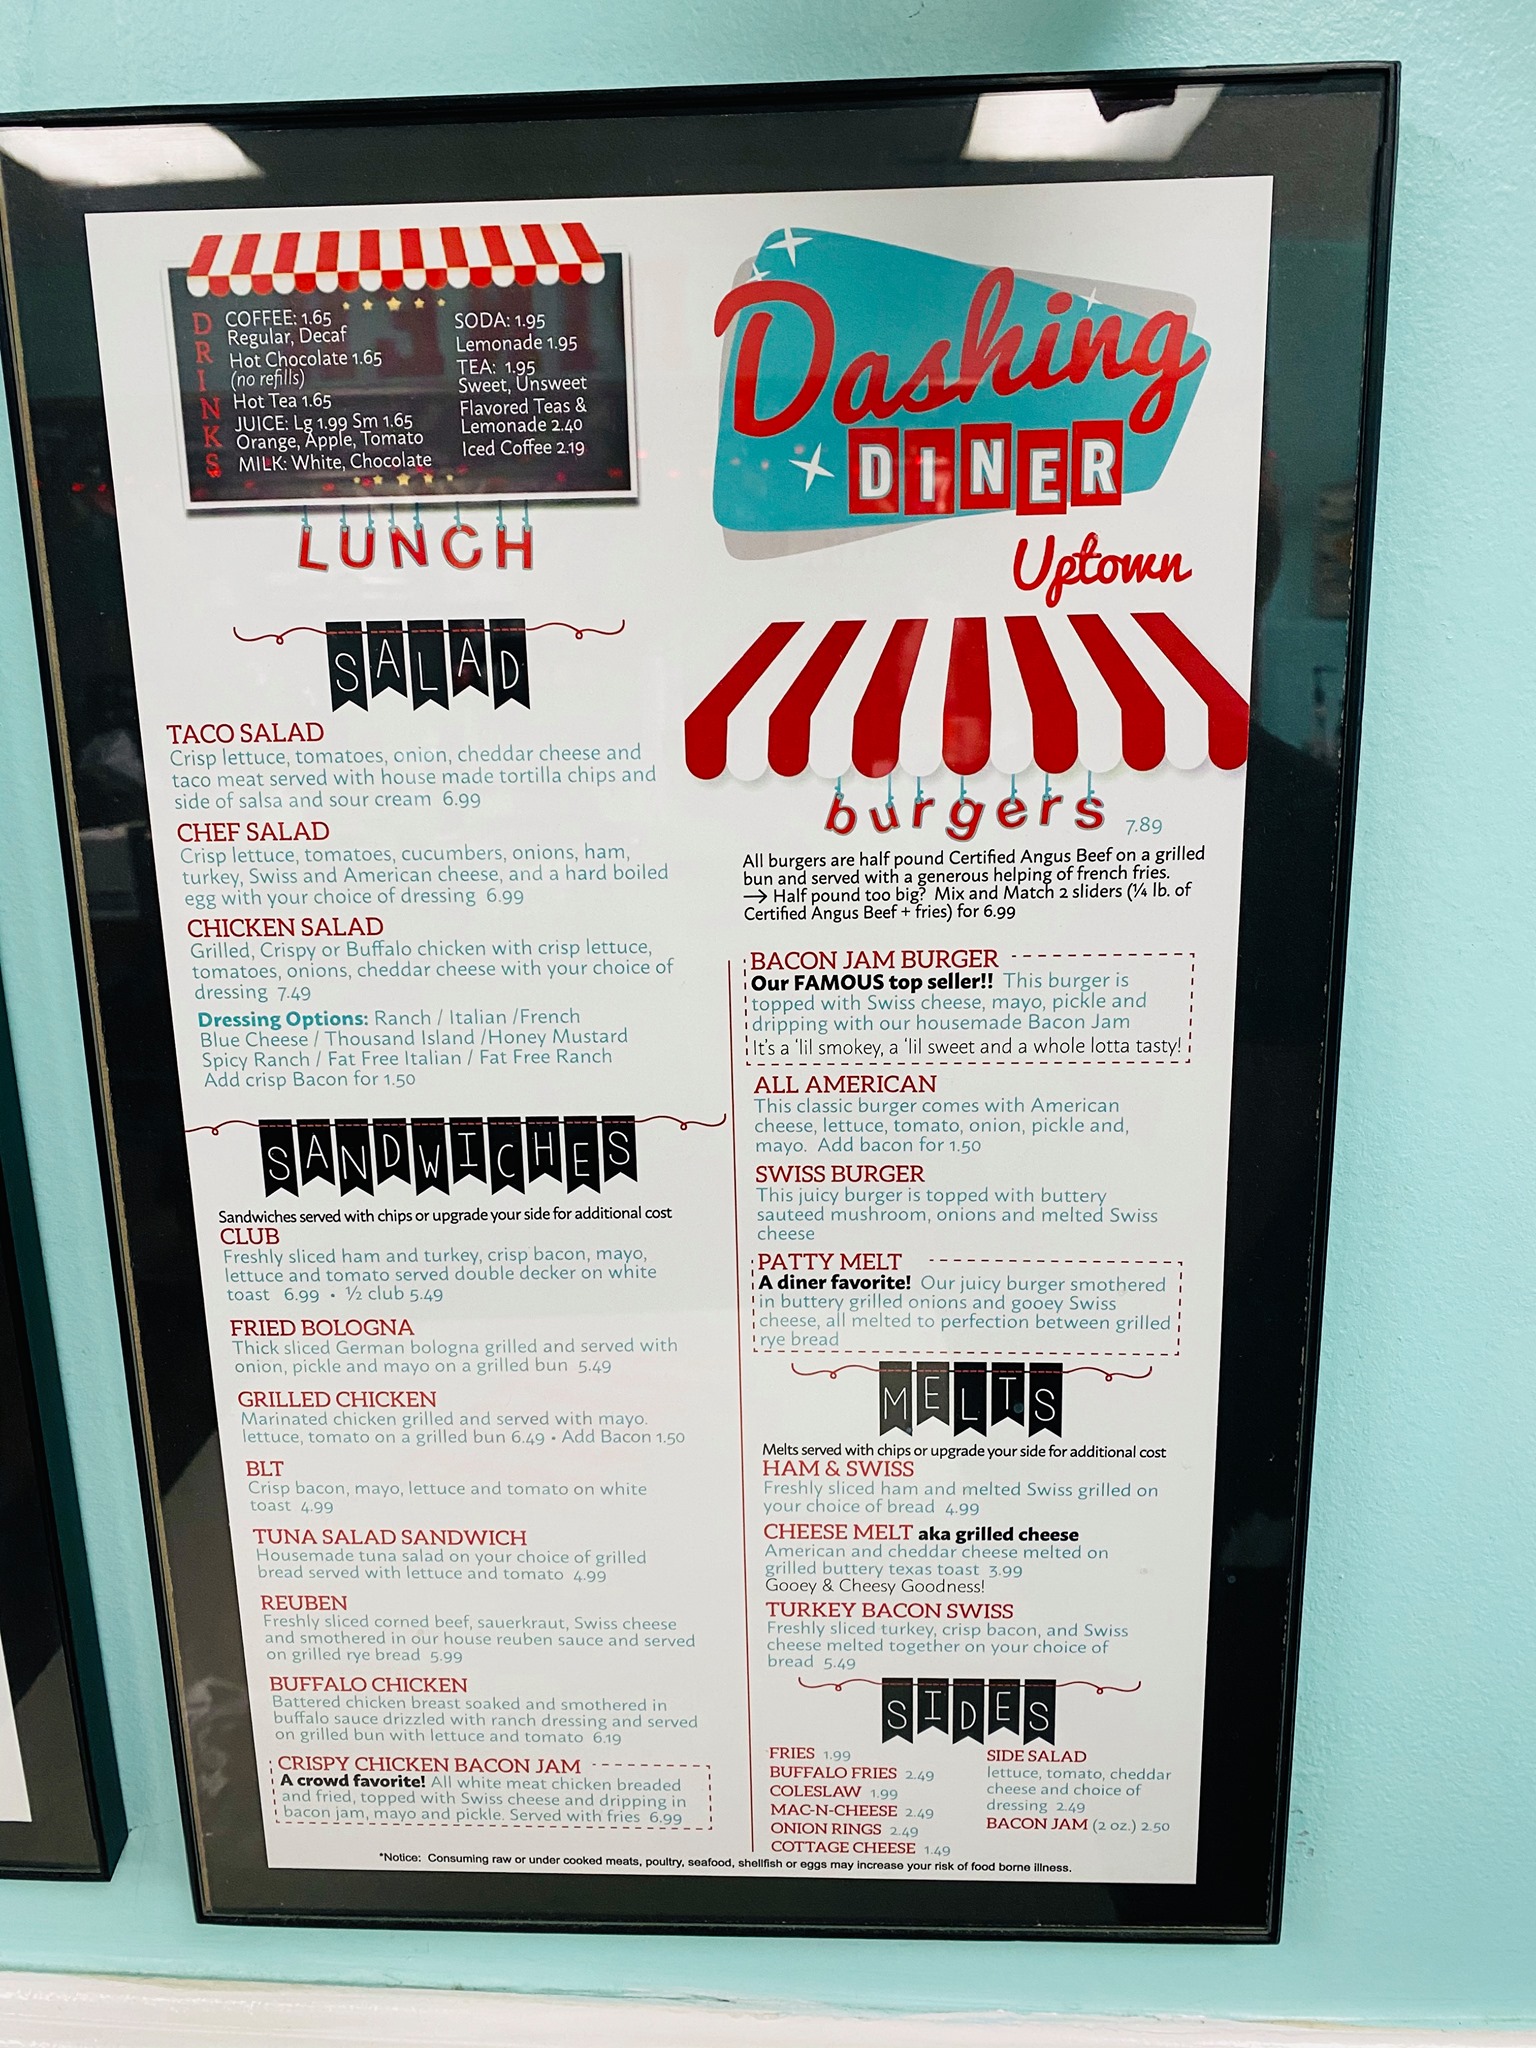 DRINKS
COFFEE: 1.65
Regular, Decaf
Hot Chocolate 1.65
(no refills)
Hot Tea 1.65
JUICE: Lg 1.99 Sm 1.65
Orange, Apple, Tomato
MILK: White, Chocolate
SODA: 1.95
Lemonade 1.95
TEA: 1.95
Sweet, Unsweet
Flavored Teas &
Lemonade 2.40
Iced Coffee 2.19
LUNCH
SALAD
TACO SALAD
Crisp lettuce, tomatoes, onion, cheddar cheese and
taco meat served with house made tortilla chips and
side of salsa and sour cream 6.99
CHEF SALAD
Crisp lettuce, tomatoes, cucumbers, onions, ham,
turkey, Swiss and American cheese, and a hard boiled
egg with your choice of dressing 6.99
CHICKEN SALAD
Grilled, Crispy or Buffalo chicken with crisp lettuce,
tomatoes, onions, cheddar cheese with your choice of
dressing 7.49
Dressing Options: Ranch / Italian /French
Blue Cheese / Thousand Island /Honey Mustard
Spicy Ranch / Fat Free Italian / Fat Free Ranch
Add crisp Bacon for 1.50
SANDWICHES
Sandwiches served with chips or upgrade your side for additional cost
CLUB
Freshly sliced ham and turkey, crisp bacon, mayo,
lettuce and tomato served double decker on white
toast 6.99 • ½ club 5.49
FRIED BOLOGNA
Thick sliced German bologna grilled and served with
onion, pickle and mayo on a grilled bun 5.49
GRILLED CHICKEN
Marinated chicken grilled and served with mayo.
lettuce, tomato on a grilled bun 6.49 • Add Bacon 1.50
BLT
Crisp bacon, mayo, lettuce and tomato on white
toast 4.99
TUNA SALAD SANDWICH
Housemade tuna salad on your choice of grilled
bread served with lettuce and tomato 4.99
REUBEN
Freshly sliced corned beef, sauerkraut, Swiss cheese
and smothered in our house reuben sauce and served
on grilled rye bread 5.99
BUFFALO CHICKEN
Battered chicken breast soaked and smothered in
buffalo sauce drizzled with ranch dressing and served
on grilled bun with lettuce and tomato 6.19
CRISPY CHICKEN BACON JAM
A crowd favorite! All white meat chicken breaded
and fried, topped with Swiss cheese and dripping in
bacon jam, mayo and pickle. Served with fries 6.99
Dashing
DINER
Uptown
burgers 7.89
All burgers are half pound Certified Angus Beef on a grilled
bun and served with a generous helping of french fries.
→ Half pound too big? Mix and Match 2 sliders (¼ lb. of
Certified Angus Beef + fries) for 6.99
BACON JAM BURGER
Our FAMOUS top seller!! This burger is
topped with Swiss cheese, mayo, pickle and
dripping with our housemade Bacon Jam
It's a 'lil smokey, a 'lil sweet and a whole lotta tasty!
ALL AMERICAN
This classic burger comes with American
cheese, lettuce, tomato, onion, pickle and,
mayo. Add bacon for 1.50
SWISS BURGER
This juicy burger is topped with buttery
sauteed mushroom, onions and melted Swiss
cheese
PATTY MELT
A diner favorite! Our juicy burger smothered
in buttery grilled onions and gooey Swiss
cheese, all melted to perfection between grilled
rye bread
MELTS
Melts served with chips or upgrade your side for additional cost
HAM & SWISS
Freshly sliced ham and melted Swiss grilled on
your choice of bread 4.99
CHEESE MELT aka grilled cheese
American and cheddar cheese melted on
grilled buttery texas toast 3.99
Gooey & Cheesy Goodness!
TURKEY BACON SWISS
Freshly sliced turkey, crisp bacon, and Swiss
cheese melted together on your choice of
bread 5.49
SIDES
FRIES 1.99
BUFFALO FRIES 2.49
COLESLAW 1.99
MAC-N-CHEESE 2.49
ONION RINGS 2.49
COTTAGE CHEESE 1.49
SIDE SALAD
lettuce, tomato, cheddar
cheese and choice of
dressing 2.49
BACON JAM (2 oz.) 2.50
*Notice: Consuming raw or under cooked meats, poultry, seafood, shellfish or eggs may increase your risk of food borne illness.